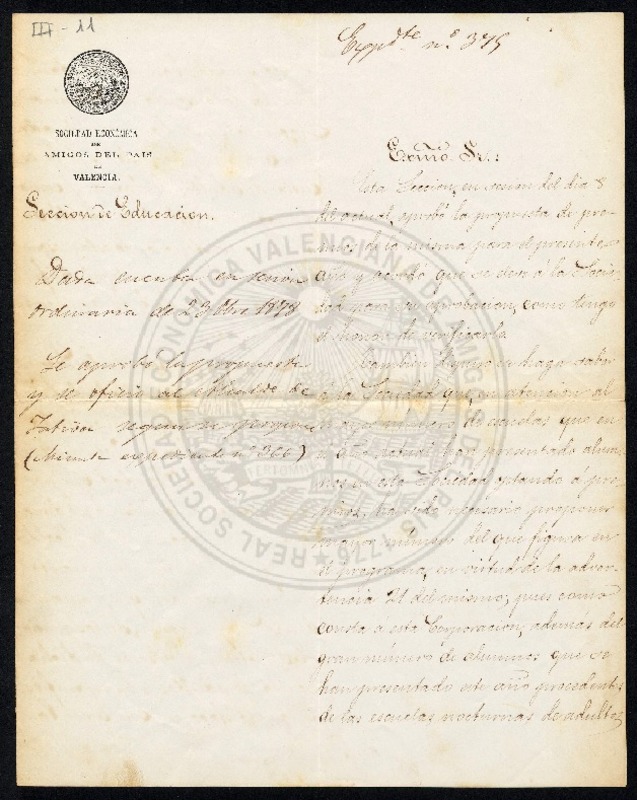 III - 11
Expdte nº 375
SOCIEDAD ECONÓMICA
DE
AMIGOS DEL PAIS
DE
VALENCIA.
Seccion de Educacion.
Dada cuenta en sesion
ordinaria de 23 Obre 1878
Se aprobó la propuesta
y de oficio al Alcalde de
segun se
expediente nº 366)
Excmo. Sr.:
Esta Seccion, en sesion del dia 8
del actual, aprobó la propuesta de pre-
mios de la misma para el presente
año y acordó que se eleve á la Socie-
dad para su aprobacion, como tengo
el honor de verificarlo.
Tambien haga saber
Sociedad que, en atencion al
numero de escuelas que en
presentado alum-
nos en esta Sociedad optando á pre-
mios, ha sido necesario proponer
mayor número del que figura en
el programa, en virtud de la adver-
tencia 21 del mismo; pues como
consta á esta Corporacion, ademas del
gran número de alumnos que se
han presentado este año procedentes
de las escuelas nocturnas de adultos,
REAL SOCIEDAD ECONOMICA VALENCIANA DE AMIGOS DEL PAIS 1776